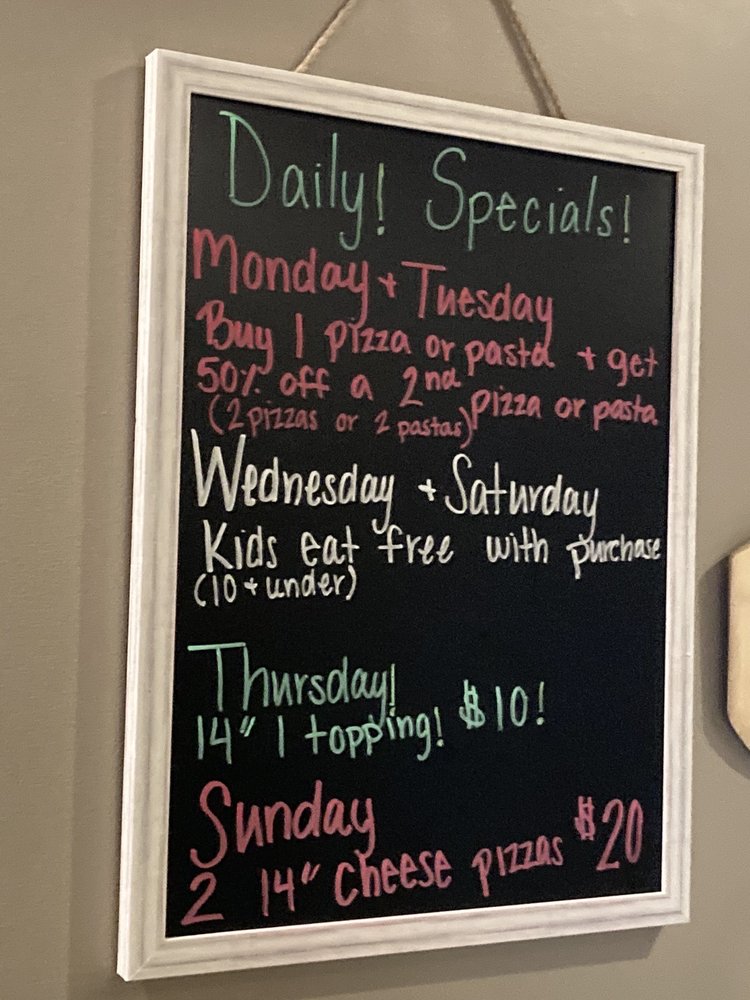 Daily! Specials!
Monday + Tuesday
Buy 1 pizza or pasta + get
50% off a 2nd pizza or pasta
(2 pizzas or 2 pastas)
Wednesday + Saturday
Kids eat free with purchase
(10 + under)
Thursday!
14" 1 topping! $10!
Sunday
2 14" Cheese pizzas $20